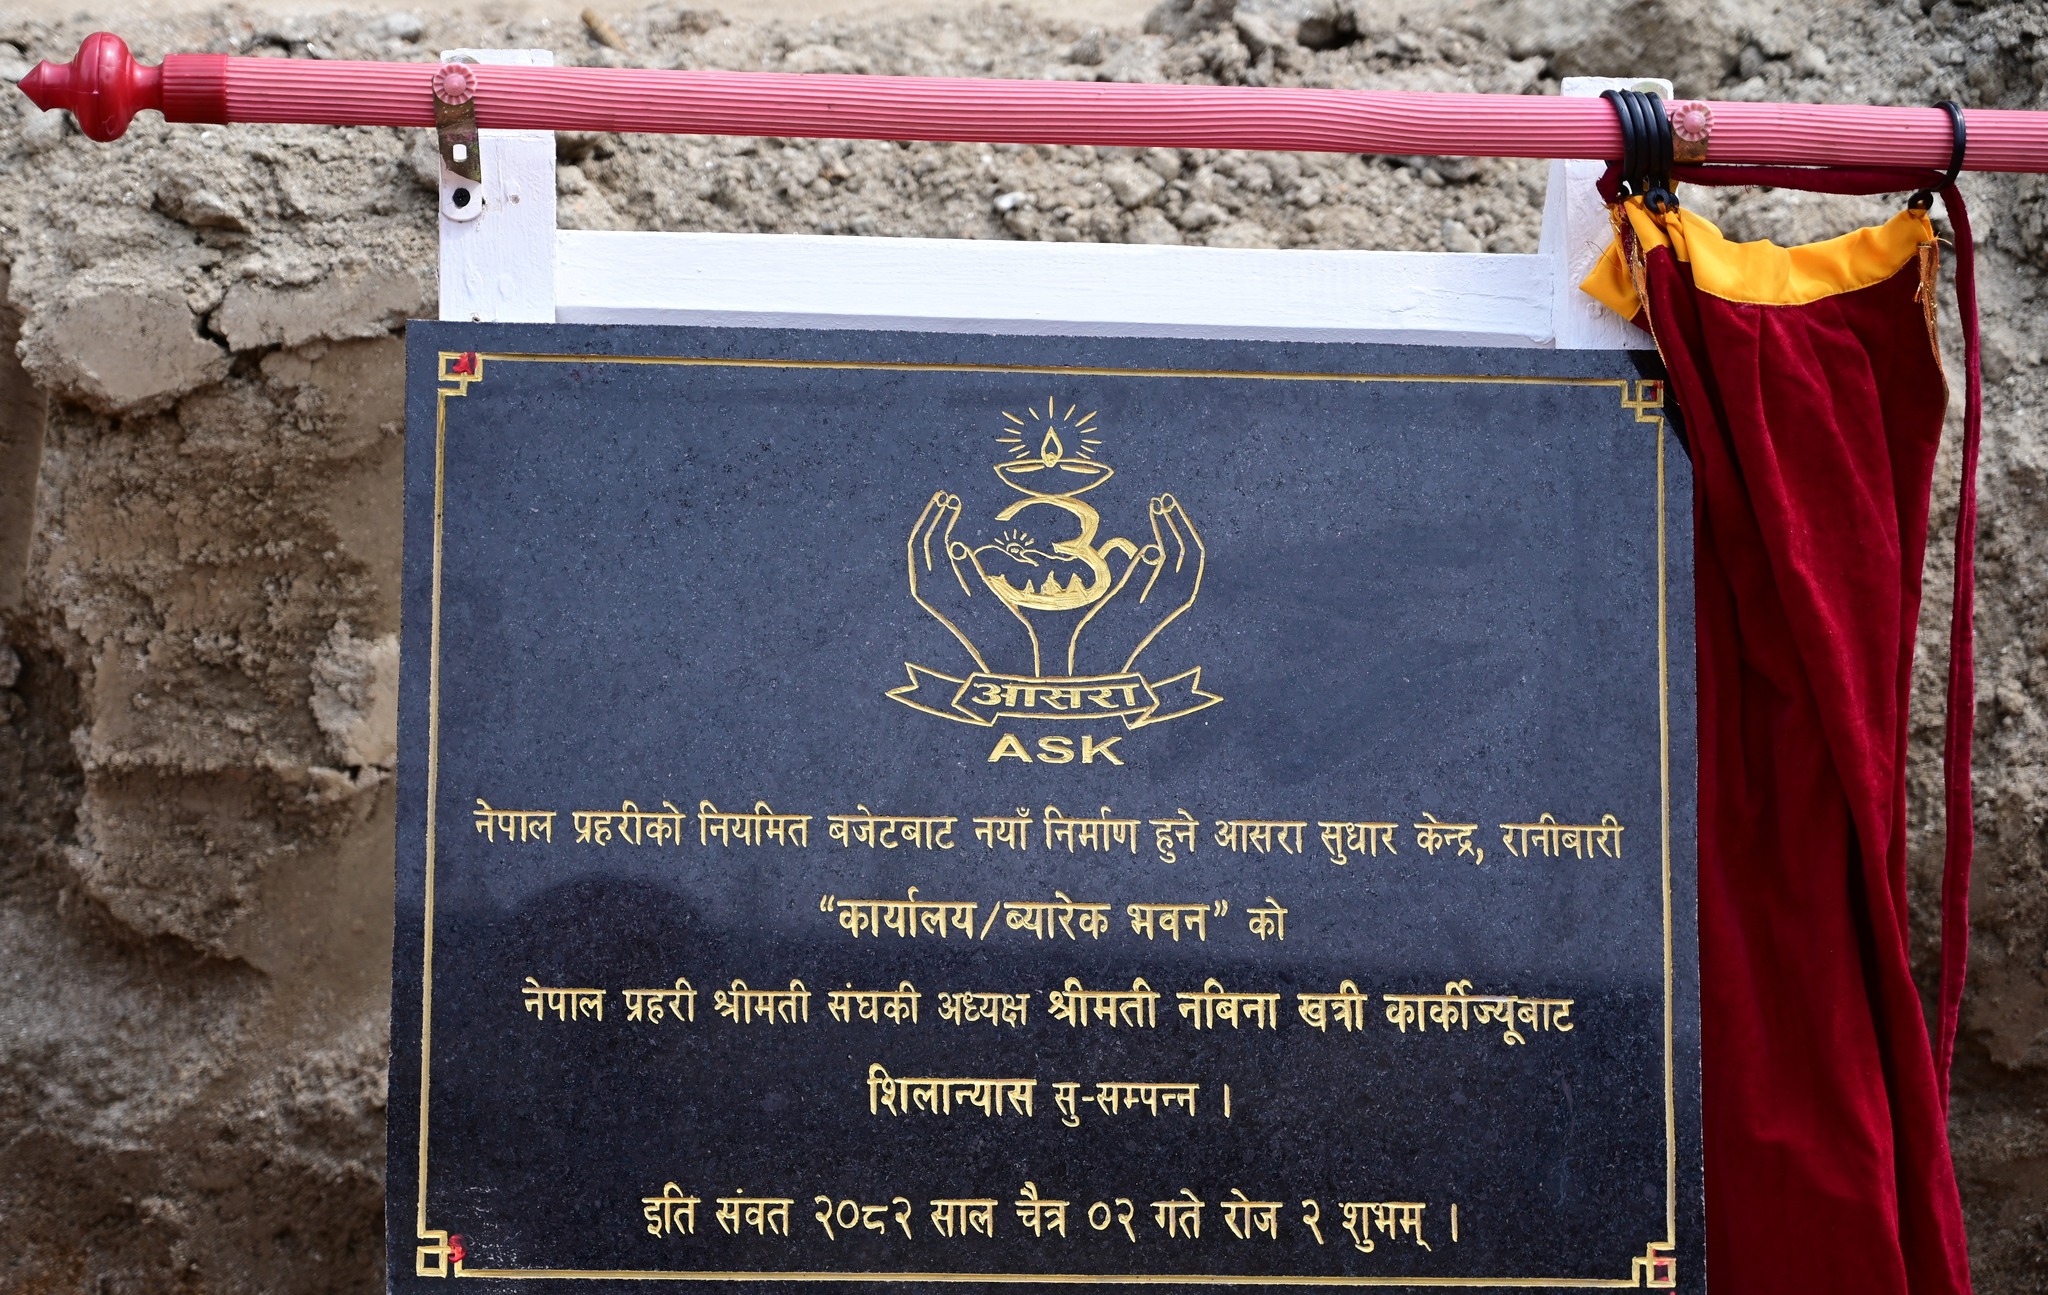 आसरा
ASK
नेपाल प्रहरीको नियमित बजेटबाट नयाँ निर्माण हुने आसरा सुधार केन्द्र, रानीबारी
“कार्यालय/ब्यारेक भवन” को
नेपाल प्रहरी श्रीमती संघकी अध्यक्ष श्रीमती नबिना खत्री कार्कीज्यूबाट
शिलान्यास सु-सम्पन्न ।
इति संवत २०८२ साल चैत्र ०२ गते रोज २ शुभम् ।